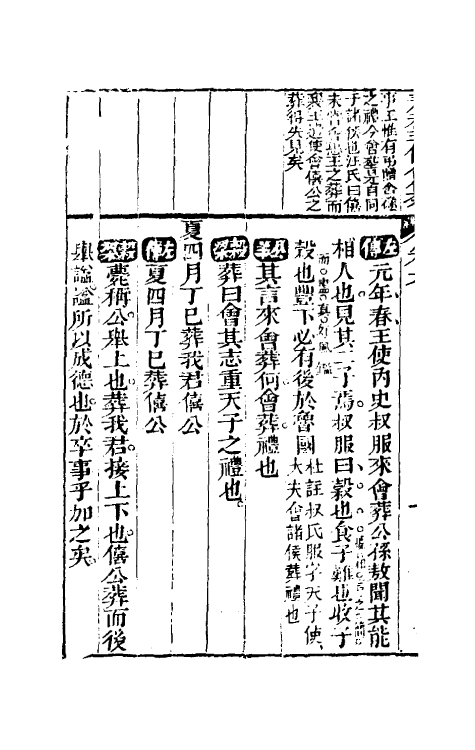 事王惟有弔贈含襚
之禮今會葬是自同
于諸侯也汪氏曰僖
未嘗會惠王之葬而
襄王遣使會僖公之
葬得失見矣
左傳 元年春王使內史叔服來會葬公孫敖聞其能
相人也見其二子焉叔服曰穀也食子難也收子
穀也豐下必有後於魯國 杜註叔氏服字天子使
大夫會諸侯葬禮也
公羊 其言來會葬何會葬禮也
穀梁 葬曰會其志重天子之禮也
夏四月丁巳葬我君僖公
左傳 夏四月丁巳葬僖公
穀梁 薨稱公舉上也葬我君接上下也僖公葬而後
舉諡諡所以成德也於卒事乎加之矣